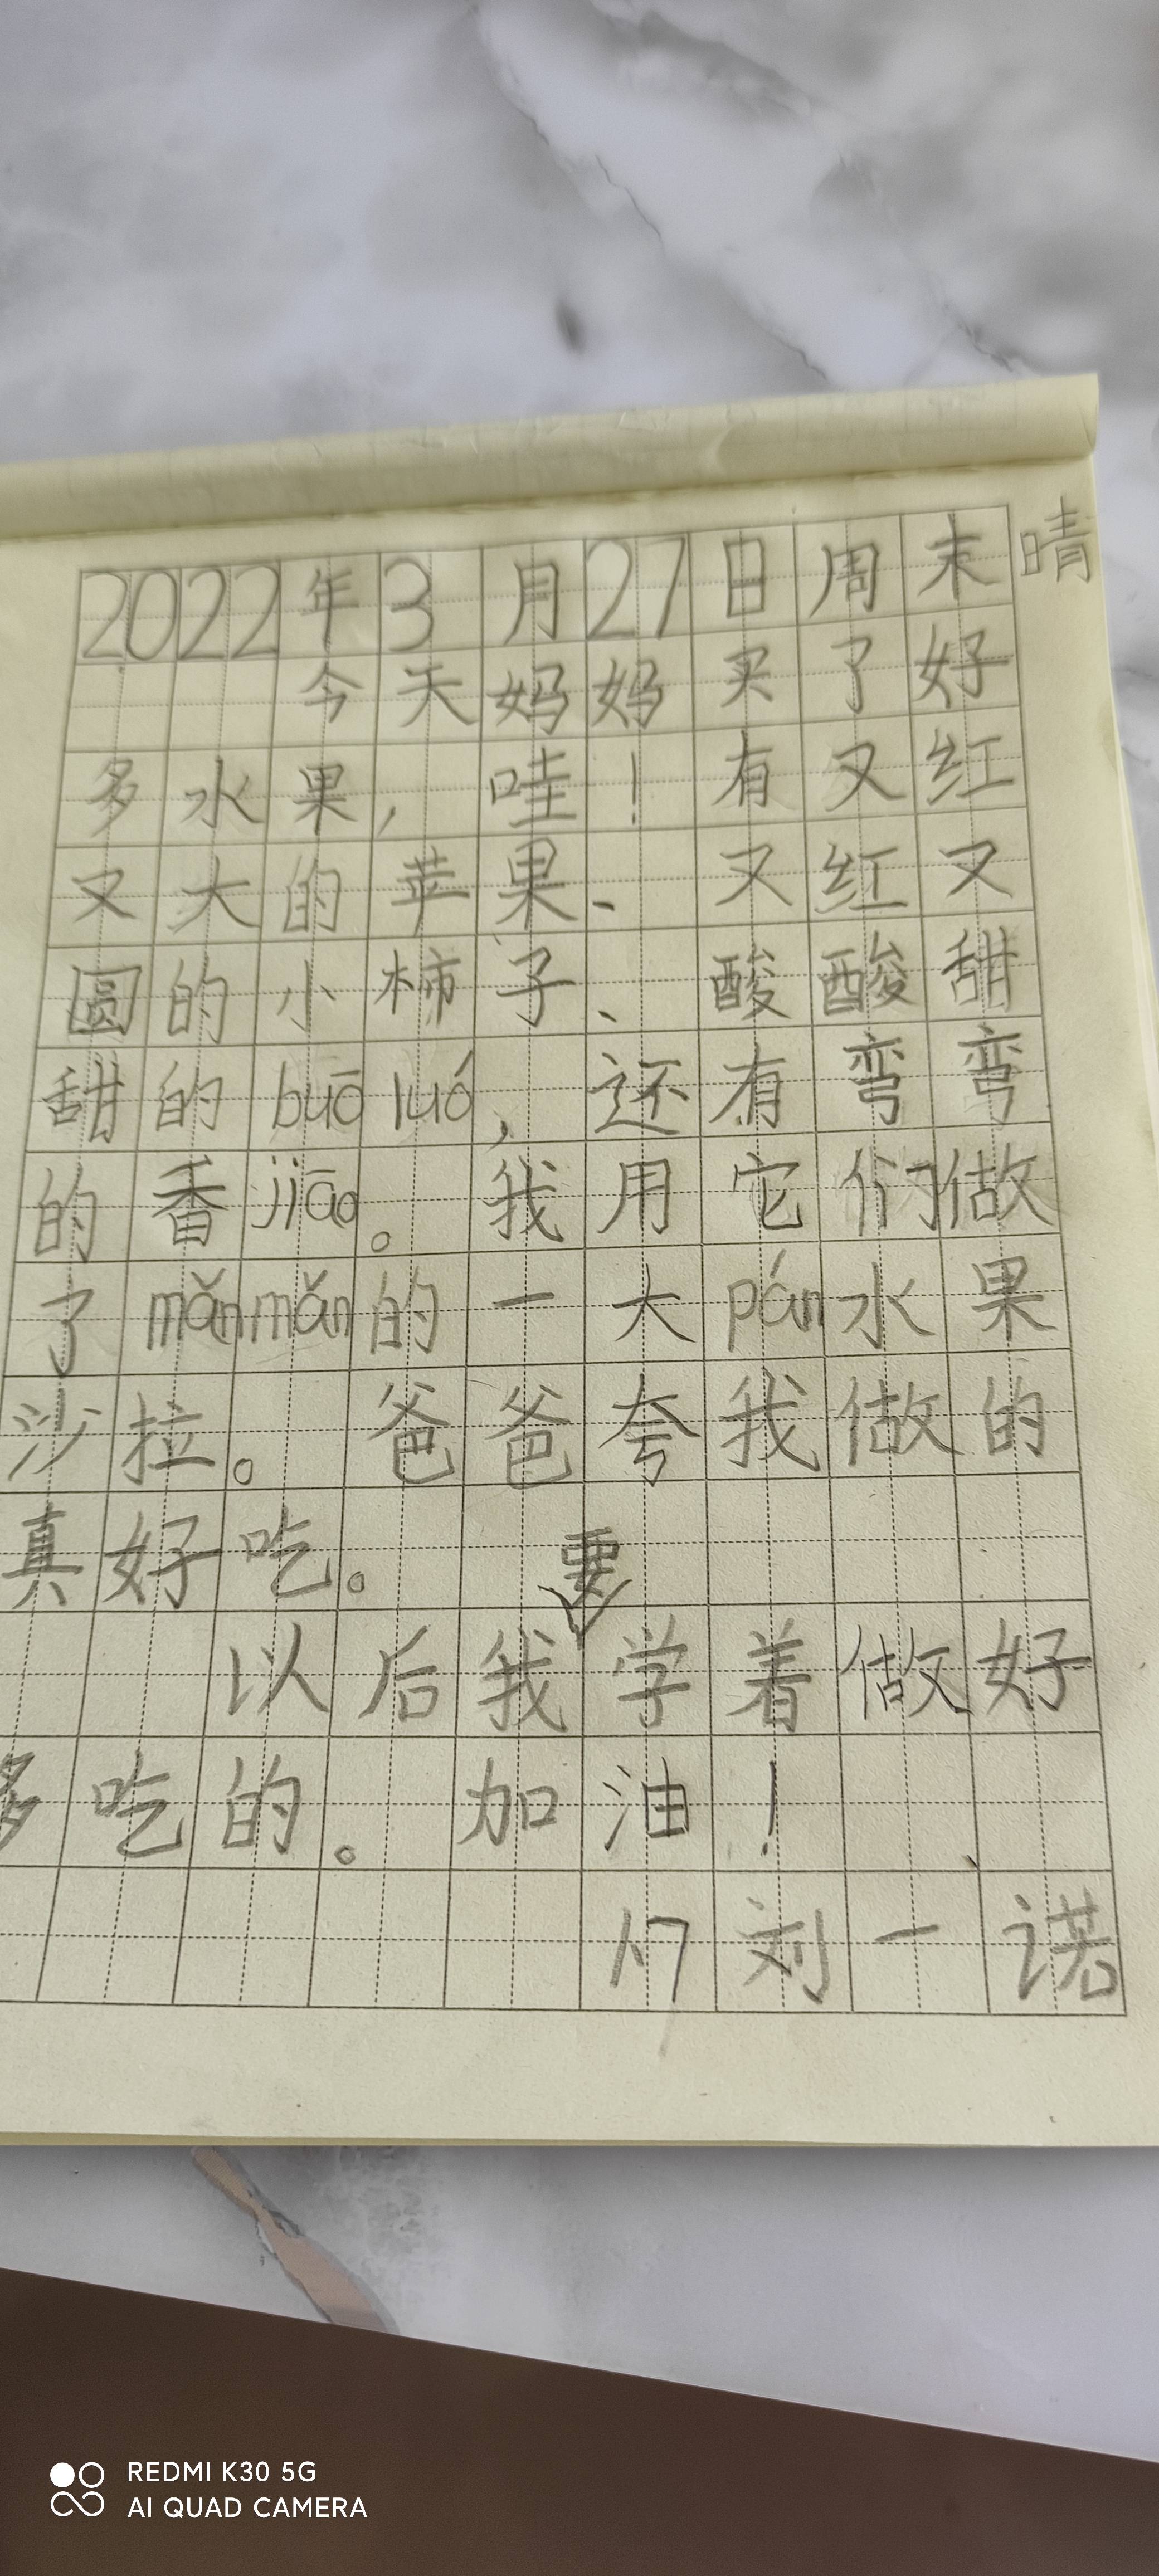 2022年3月27日周末晴
今天妈妈买了好
多水果，哇！有又红
又大的苹果、又红又
圆的小柿子、酸酸甜
甜的buō luó，还有弯弯
的香jiāo。我用它们做
了mǎnmǎn的一大pán水果
沙拉。爸爸夸我做的
真好吃。
以后我要学着做好
多吃的。加油！
17刘一诺
REDMI K30 5G
AI QUAD CAMERA